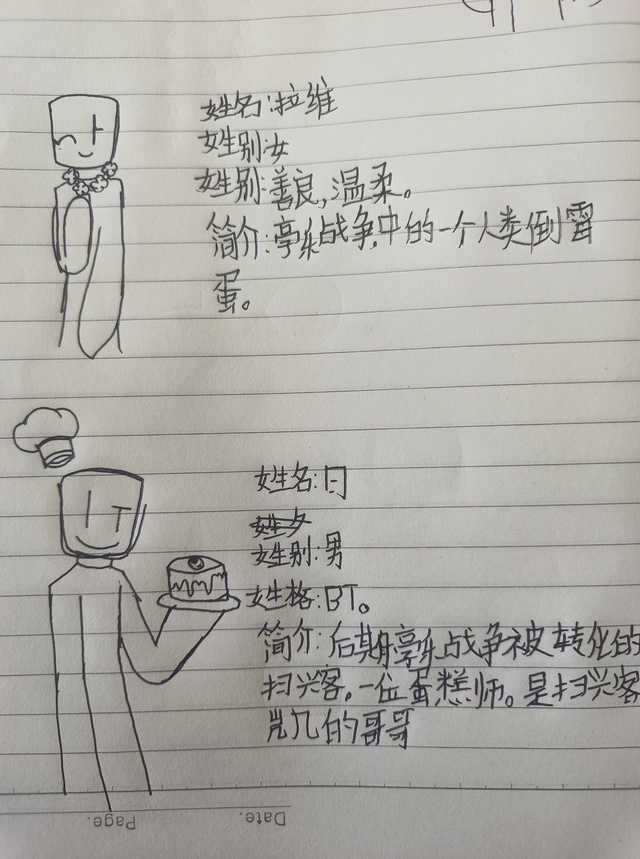 姓名:拉维
姓别:女
姓别:善良,温柔。
简介:享乐战争中的一个人类倒霉
蛋。
姓名:日
姓夕
姓别:男
姓格:BT。
简介:后期享乐战争被转化的
扫兴客,一位蛋糕师。是扫兴客
岂几的哥哥
Page. Date.